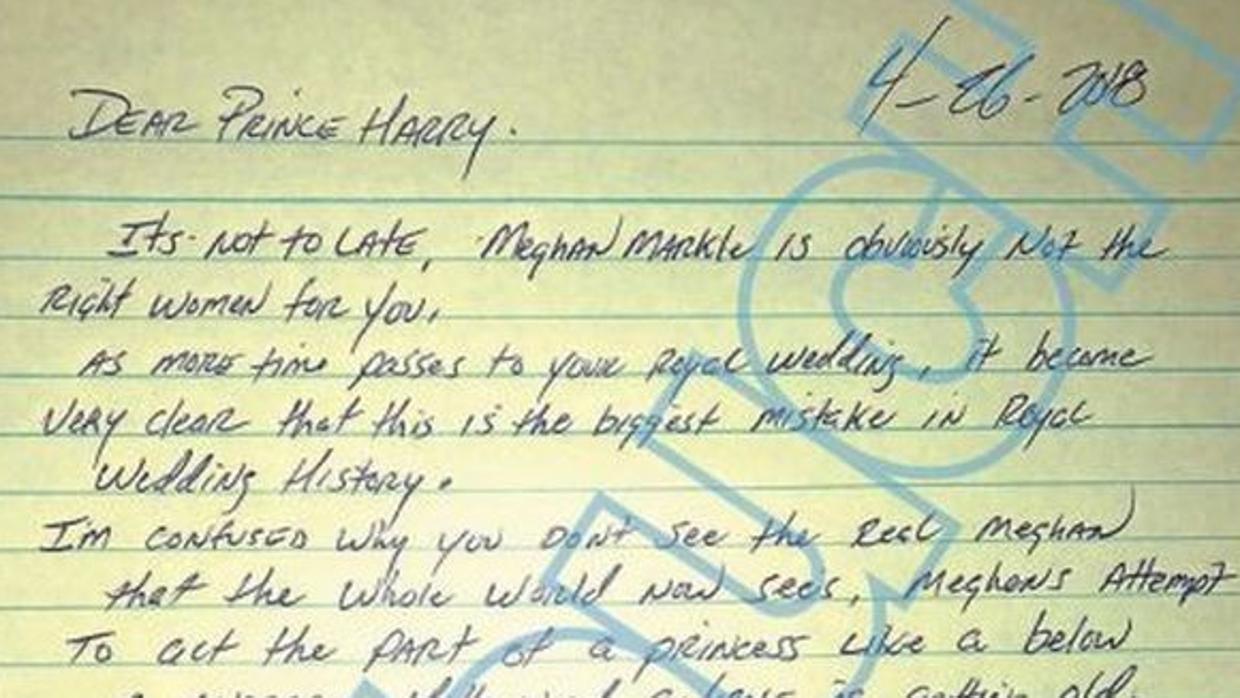 4-26-2018
DEAR PRINCE HARRY.
Its not to LATE, Meghan MARKle is obviously Not the
Right women for you.
As more time passes to your Royal wedding, it became
Very clear that this is the biggest mistake in Royal
Wedding History.
I'm confused why you Don't see the Real Meghan
that the whole world now sees, Meghans Attempt
To act the PART of a princess Like a below
is getting old